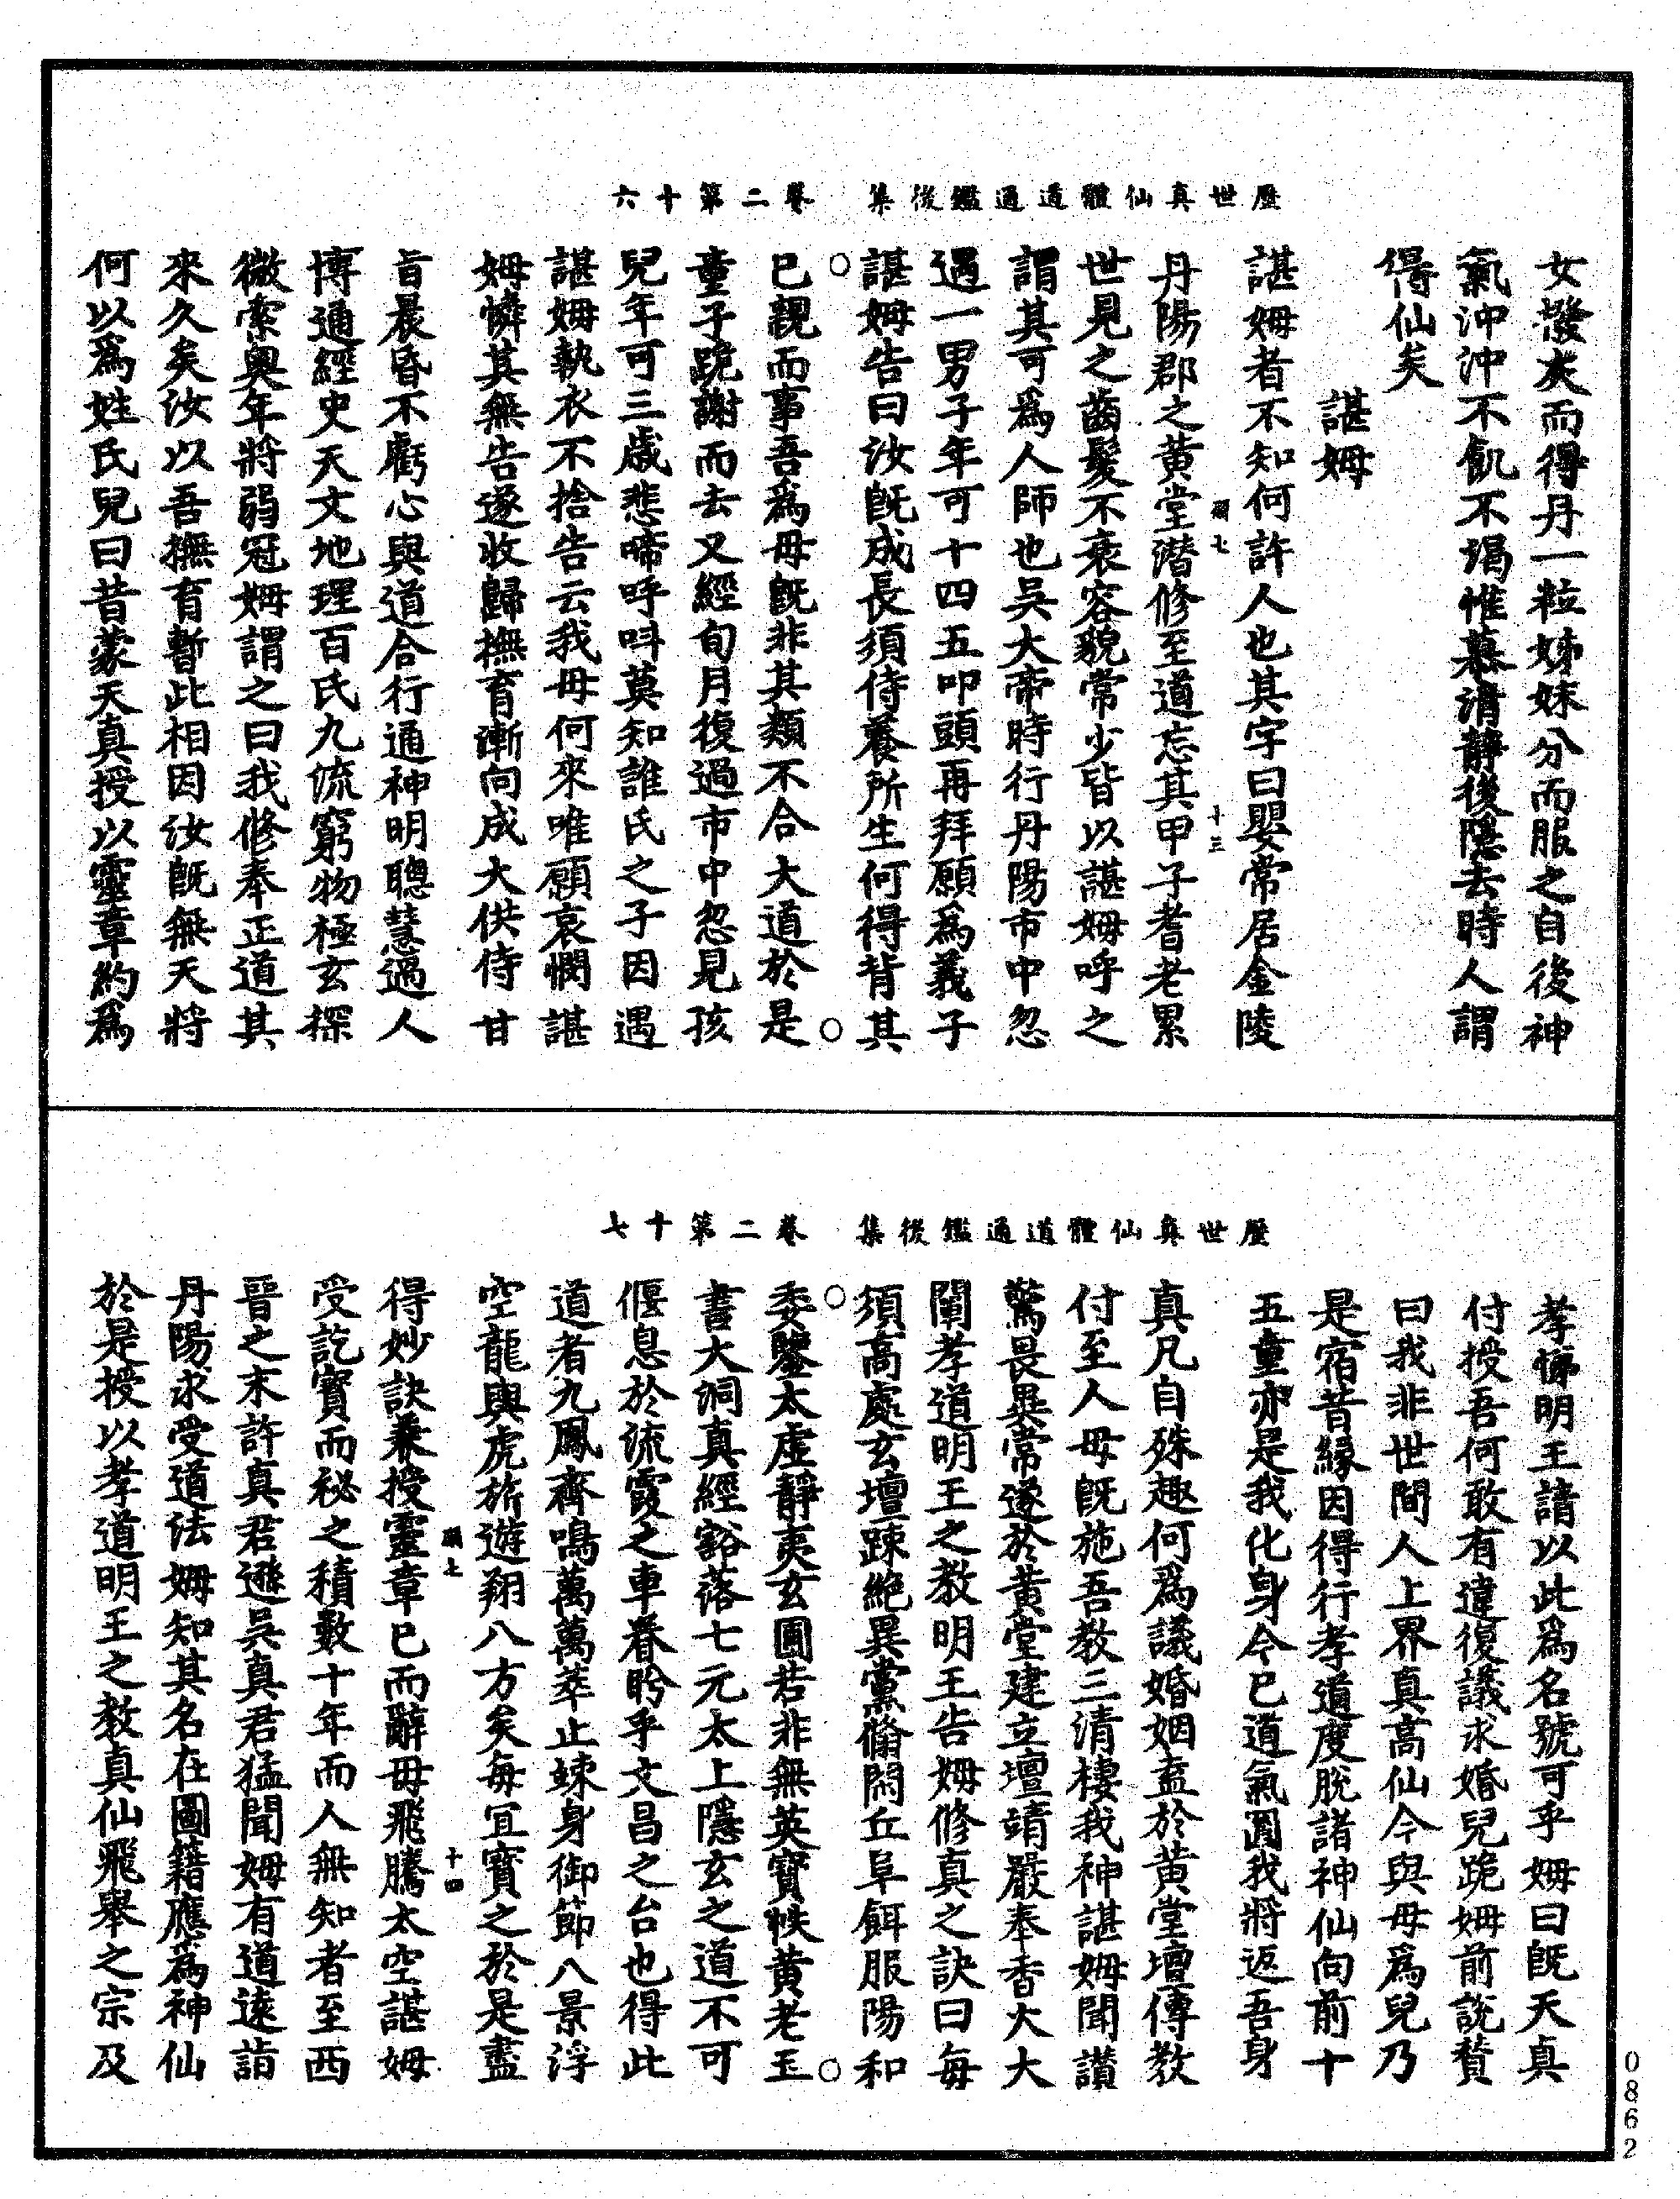 歷世真仙體道通鑑後集　卷二第十六
女撥灰而得丹一粒姊妹分而服之自後神
氣沖沖不飢不渴惟慕清靜後隱去時人謂
得仙矣
諶姆
諶姆者不知何許人也其字曰嬰常居金陵
丹陽郡之黃堂潛修至道忘其甲子耆老累
世見之齒髮不衰容貌常少皆以諶姆呼之
謂其可爲人師也吳大帝時行丹陽市中忽
遇一男子年可十四五叩頭再拜願爲義子
諶姆告曰汝旣成長須侍養所生何得背其
已親而事吾爲母旣非其類不合大道於是
童子跪謝而去又經旬月復過市中忽見孩
兒年可三歲悲啼呼叫莫知誰氏之子因遇
諶姆執衣不捨告云我母何來唯願哀憫諶
姆憐其無告遂收歸撫育漸向成大供侍甘
旨晨昏不虧心與道合行通神明聰慧過人
博通經史天文地理百氏九流窮物極玄探
微索奧年將弱冠姆謂之曰我修奉正道其
來久矣汝以吾撫育暫此相因汝旣無天將
何以爲姓氏兒曰昔蒙天真授以靈章約爲
十三
歷世真仙體道通鑑後集　卷二第十七
孝悌明王請以此爲名號可乎姆曰旣天真
付授吾何敢有違復議求婚兒跪姆前說贊
曰我非世間人上界真高仙今與母爲兒乃
是宿昔緣因得行孝道度脫諸神仙向前十
五童亦是我化身今已道氣圓我將返吾身
真凡自殊趣何爲議婚姻盍於黃堂壇傳敎
付至人母旣施吾敎三清棲我神諶姆聞讚
驚畏異常遂於黃堂建立壇靖嚴奉香大大
闡孝道明王之敎明王告姆修真之訣曰每
須高處玄壇踈絕異黨翛閑丘阜餌服陽和
委鑒太虛靜夷玄圃若非無英寶帙黃老玉
書大洞真經豁落七元太上隱玄之道不可
偃息於流霞之車眷盻乎文昌之台也得此
道者九鳳齊鳴萬萬萃止竦身御節八景浮
空龍輿虎旂遊翔八方矣每宜寶之於是盡
得妙訣兼授靈章已而辭母飛騰太空諶姆
受訖寶而祕之積數十年而人無知者至西
晉之末許真君遜吳真君猛聞姆有道遠詣
丹陽求受道法姆知其名在圖籍應爲神仙
於是授以孝道明王之敎真仙飛舉之宗及
十四
0862